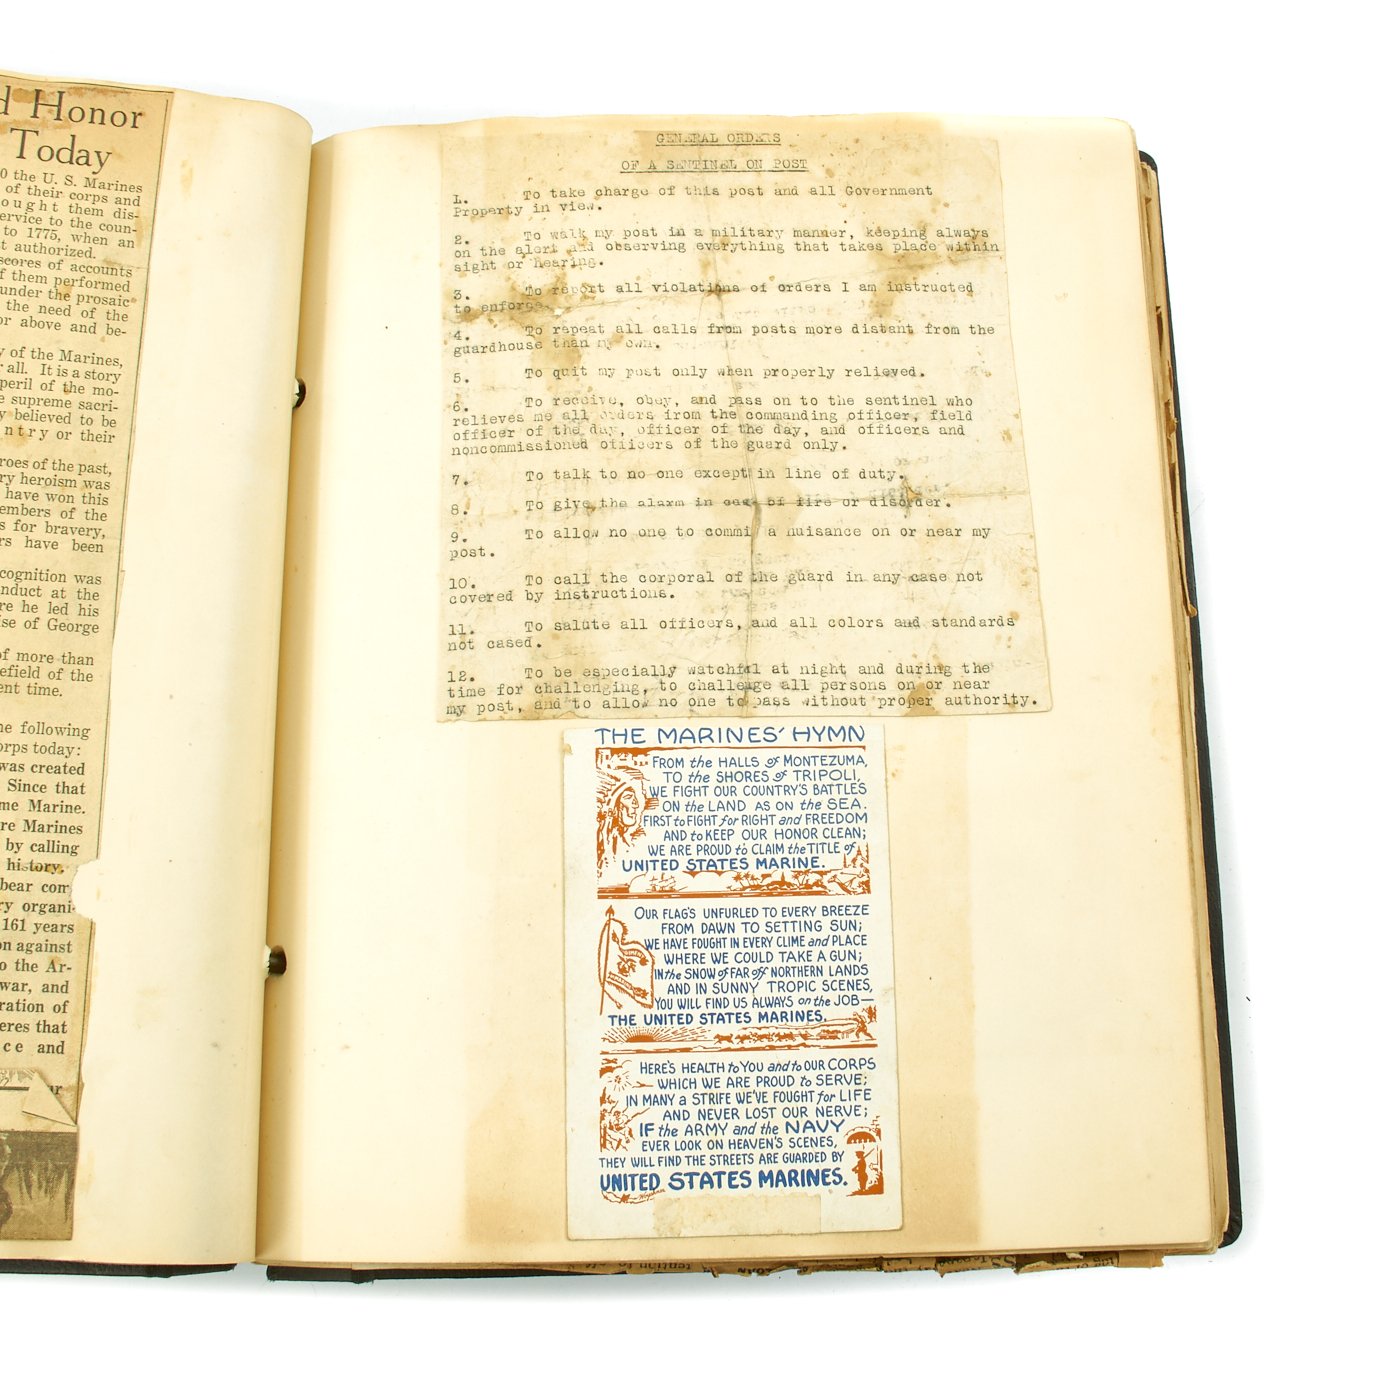 d Honor
Today
0 the U. S. Marines
of their corps and
ought them dis-
ervice to the coun-
to 1775, when an
t authorized.
scores of accounts
f them performed
under the prosaic
the need of the
or above and be-
y of the Marines,
all. It is a story
peril of the mo-
e supreme sacri-
y believed to be
ntry or their
roes of the past,
ry heroism was
have won this
embers of the
s for bravery,
rs have been
cognition was
nduct at the
re he led his
se of George
of more than
efield of the
ent time.
he following
orps today:
was created
Since that
me Marine.
re Marines
by calling
history.
bear com-
ry organi-
161 years
on against
o the Ar-
war, and
ration of
eres that
ce and
GENERAL ORDERS
OF A SENTINEL ON POST
1. To take charge of this post and all Government
Property in view.
2. To walk my post in a military manner, keeping always
on the alert and observing everything that takes place within
sight or hearing.
3. To report all violations of orders I am instructed
to enforce.
4. To repeat all calls from posts more distant from the
guardhouse than my own.
5. To quit my post only when properly relieved.
6. To receive, obey, and pass on to the sentinel who
relieves me all orders from the commanding officer, field
officer of the day, officer of the day, and officers and
noncommissioned officers of the guard only.
7. To talk to no one except in line of duty.
8. To give the alarm in case of fire or disorder.
9. To allow no one to commi a nuisance on or near my
post.
10. To call the corporal of the guard in any case not
covered by instructions.
11. To salute all officers, and all colors and standards
not cased.
12. To be especially watchful at night and during the
time for challenging, to challenge all persons on or near
my post, and to allow no one to pass without proper authority.
THE MARINES' HYMN
FROM the HALLS of MONTEZUMA,
TO the SHORES of TRIPOLI,
WE FIGHT OUR COUNTRY'S BATTLES
ON the LAND AS ON the SEA.
FIRST to FIGHT for RIGHT and FREEDOM
AND to KEEP OUR HONOR CLEAN;
WE ARE PROUD to CLAIM the TITLE of
UNITED STATES MARINE.
OUR FLAG'S UNFURLED TO EVERY BREEZE
FROM DAWN TO SETTING SUN;
WE HAVE FOUGHT IN EVERY CLIME and PLACE
WHERE WE COULD TAKE A GUN;
IN the SNOW of FAR off NORTHERN LANDS
AND IN SUNNY TROPIC SCENES,
YOU WILL FIND US ALWAYS on the JOB—
THE UNITED STATES MARINES.
HERE'S HEALTH to YOU and to OUR CORPS
WHICH WE ARE PROUD to SERVE;
IN MANY a STRIFE WE'VE FOUGHT for LIFE
AND NEVER LOST OUR NERVE;
IF the ARMY and the NAVY
EVER LOOK ON HEAVEN'S SCENES,
THEY WILL FIND THE STREETS ARE GUARDED BY
UNITED STATES MARINES.